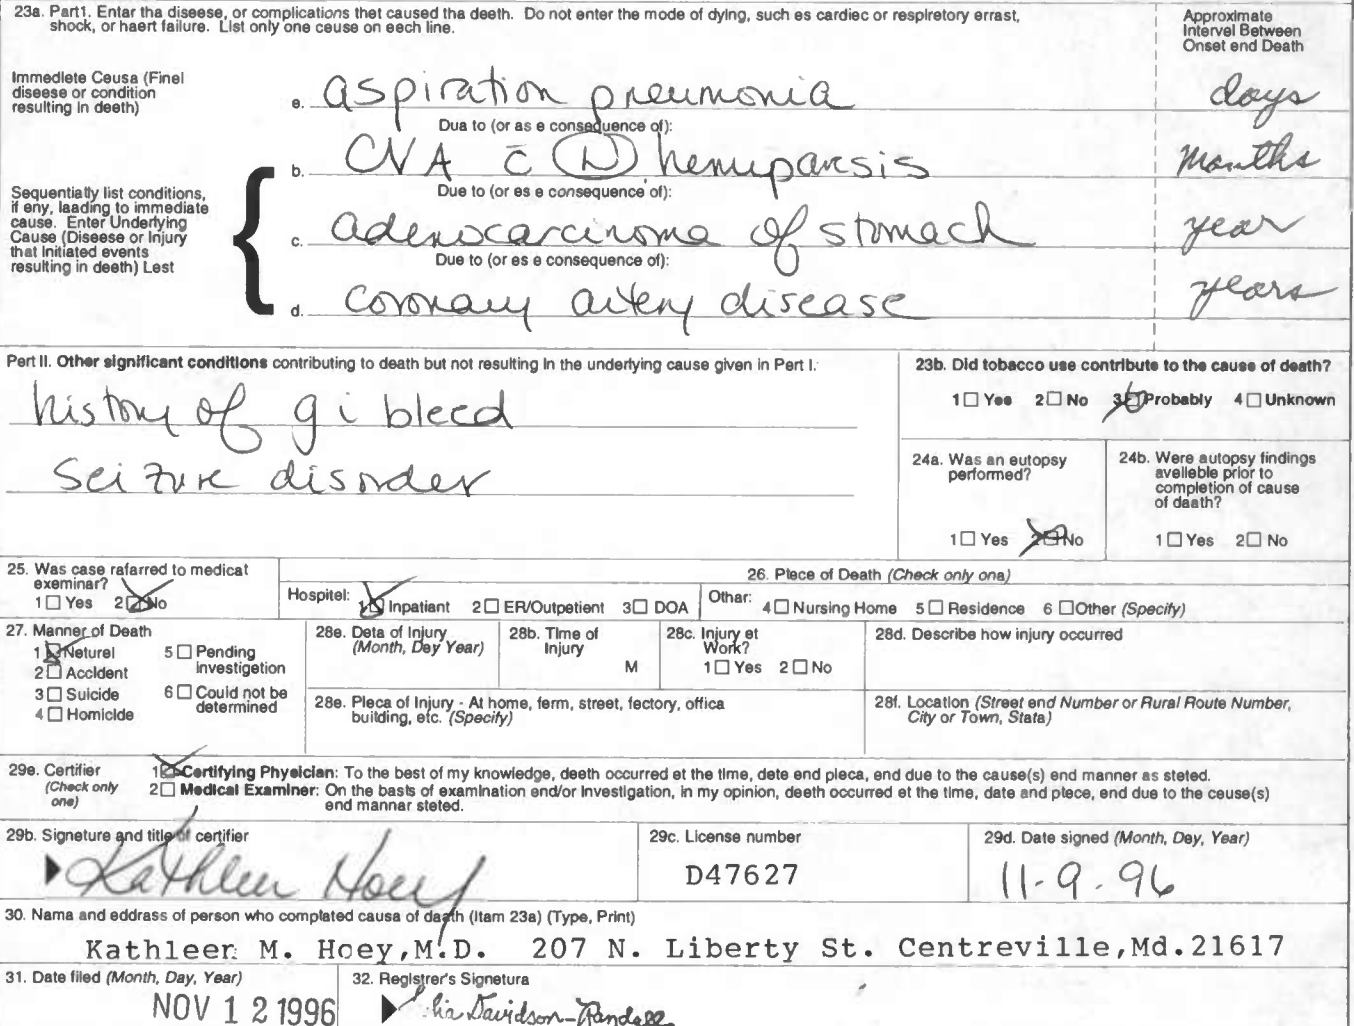 23a. Part1. Enter tha diseese, or complications thet caused tha deeth. Do not enter the mode of dying, such es cardiec or respiretory errast,
shock, or haert failure. List only one ceuse on eech line.
Approximate
Interval Between
Onset end Death
Immediete Ceusa (Finel
diseese or condition
resulting in deeth)
e. aspiration pneumonia days
Dua to (or as e consequence of):
b. CVA c̄ Ⓛ hemiparesis months
Due to (or es e consequence of):
Sequentially list conditions,
if eny, laading to immediate
cause. Enter Underlying
Cause (Diseese or Injury
that initiated events
resulting in death) Lest
c. adenocarcinoma of stomach year
Due to (or es e consequence of):
d. coronary artery disease years
Part II. Other significant conditions contributing to death but not resulting in the underlying cause given in Part I.
history of gi bleed
seizure disorder
23b. Did tobacco use contribute to the cause of death?
1 □ Yes 2 □ No 3 ☒ Probably 4 □ Unknown
24a. Was an eutopsy
performed?
1 □ Yes 2 ☒ No
24b. Were autopsy findings
avelleble prior to
completion of cause
of daath?
1 □ Yes 2 □ No
25. Was case rafarred to medicat
exeminar?
1 □ Yes 2 ☒ No
26. Plece of Death (Check only ona)
Hospitel: 1 ☒ Inpatiant 2 □ ER/Outpetient 3 □ DOA Othar: 4 □ Nursing Home 5 □ Residence 6 □ Other (Specify)
27. Manner of Death
1 ☒ Neturel 5 □ Pending
investigetion
2 □ Accident
3 □ Suicide 6 □ Could not be
determined
4 □ Homicide
28e. Deta of Injury
(Month, Dey Year)
28b. Time of
Injury
M
28c. Injury et
Work?
1 □ Yes 2 □ No
28d. Describe how injury occurred
28e. Pleca of Injury - At home, ferm, street, fectory, offica
building, etc. (Specify)
28f. Location (Street end Number or Rural Route Number,
City or Town, Stata)
29e. Certifier
(Check only
one)
1 ☒ Certifying Physician: To the best of my knowledge, deeth occurred et the time, dete end pleca, end due to the cause(s) end manner as steted.
2 □ Medical Examiner: On the basts of examination end/or Investigation, in my opinion, deeth occurred et the time, date and ptece, end due to the ceuse(s)
end mannar steted.
29b. Signeture and title of certifier
Kathleen Hoey
29c. License number
D47627
29d. Date signed (Month, Dey, Year)
11-9-96
30. Nama and eddrass of person who complated causa of daath (Itam 23a) (Type, Print)
Kathleen M. Hoey, M.D. 207 N. Liberty St. Centreville, Md. 21617
31. Date filed (Month, Day, Year)
NOV 12 1996
32. Registrer's Signetura
Davidson-Randall